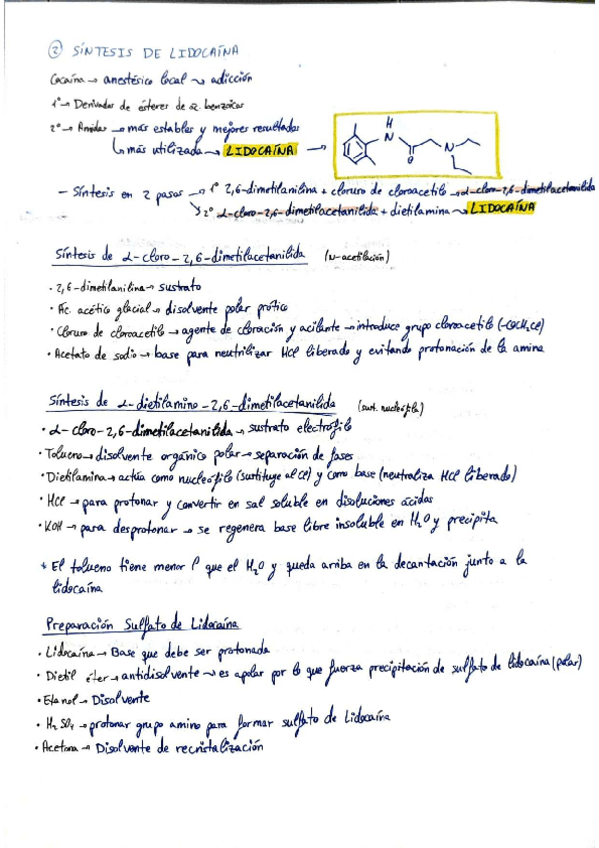 ② SÍNTESIS DE LIDOCAÍNA
Cocaína → anestésico local → adicción
1º → Derivados de ésteres de ac. benzoico
2º → Amidas → más estables y mejores resultados
↳ más utilizada → LIDOCAÍNA →
H
N
O
N
- Síntesis en 2 pasos → 1º 2,6-dimetilanilina + cloruro de cloroacetilo → α-cloro-2,6-dimetilacetanilida
↘ 2º α-cloro-2,6-dimetilacetanilida + dietilamina → LIDOCAÍNA
Síntesis de α-cloro-2,6-dimetilacetanilida (N-acetilación)
· 2,6-dimetilanilina → sustrato
· Ác. acético glacial → disolvente polar prótico
· Cloruro de cloroacetilo → agente de cloración y acilante → introduce grupo cloroacetilo (-COCH₂Cl)
· Acetato de sodio → base para neutrilizar HCl liberado y evitando protonación de la amina
Síntesis de α-dietilamino-2,6-dimetilacetanilida (sust. nucleófila)
· α-cloro-2,6-dimetilacetanilida → sustrato electrófilo
· Tolueno → disolvente orgánico polar → separación de fases
· Dietilamina → actúa como nucleófilo (sustituye al Cl) y como base (neutraliza HCl liberado)
· HCl → para protonar y convertir en sal soluble en disoluciones ácidas
· KOH → para desprotonar → se regenera base libre insoluble en H₂O y precipita
* El tolueno tiene menor ρ que el H₂O y queda arriba en la decantación junto a la
lidocaína
Preparación Sulfato de Lidocaína
· Lidocaína → Base que debe ser protonada
· Dietil éter → antidisolvente → es apolar por lo que fuerza precipitación de sulfato de lidocaína (polar)
· Etanol → Disolvente
· H₂SO₄ → protonar grupo amino para formar sulfato de Lidocaína
· Acetona → Disolvente de recristalización